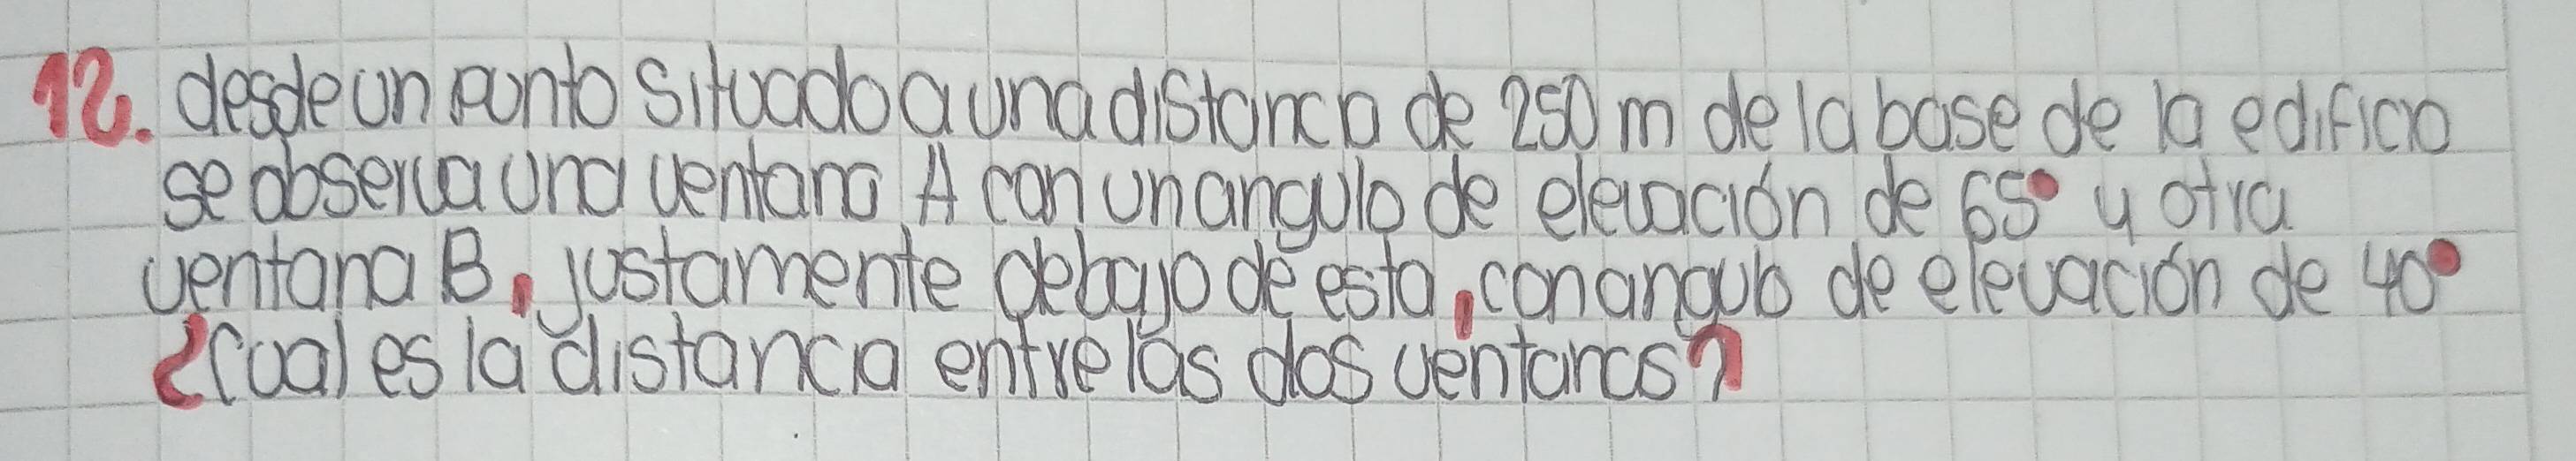 12. desde un punto situado a una distancia de 250 m de la base de la edificio
se observa una ventana A con un angulo de elevación de 65° y otra
ventana B, justamente debajo de esta, con angulo de elevación de 40°
¿Cual es la distancia entre las dos ventanas?